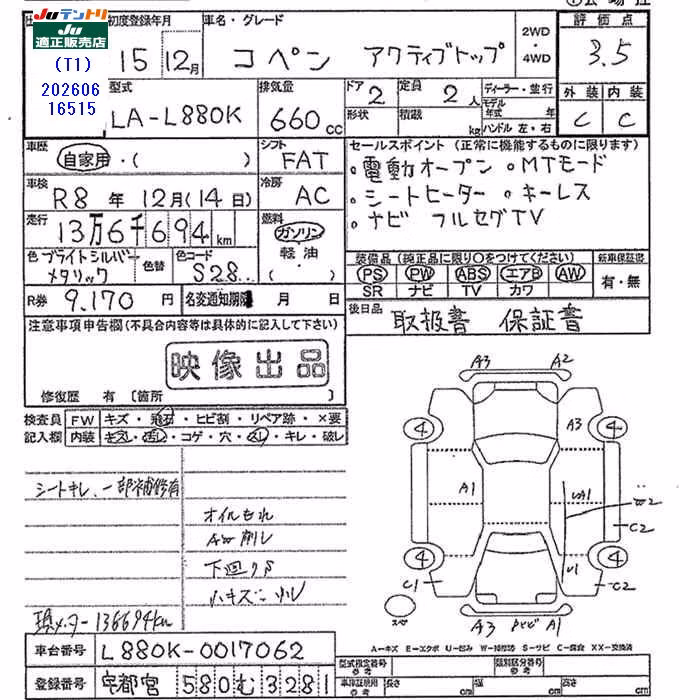 JUテントリ
JU適正販売店
(T1)
202606
16515
初度登録年月 車名・グレード 評価点
15 12月 コペン アクティブトップ 2WD・4WD 3.5
型式 排気量 ドア 定員 ディーラー・並行 外装 内装
LA-L880K 660cc 2 2人 モデル年式 年 C C
形状 積載 kg ハンドル 左・右
車歴 シフト セールスポイント (正常に機能するものに限ります)
自家用・( ) FAT 。電動オープン 。MTモード
車検 冷房 。シートヒーター 。キーレス
R8年 12月(14日) AC 。ナビ フルセグTV
走行 燃料
13万6千694km ガソリン・軽油・( )
色 ブライトシルバーメタリック 色替 色コード S28
装備品 (純正品に限り○をつけてください) 新車保証書
PS PW ABS エアB AW 有・無
SR ナビ TV カワ
R券 9.170円 名変通知期限 月 日
後日品 取扱書 保証書
注意事項申告欄(不具合内容等は具体的に記入して下さい)
映像出品
修復歴 有〔箇所 〕
検査員記入欄 FW キズ・飛石・ヒビ割・リペア跡・×要
内装 キズレ・汚レ・コゲ・穴・スレ・キレ・破レ
シートキレ、一部補修有
オイルもれ
AW削レ
下廻りS
現メーター136694km
A3 A2
4 4
A3
A1 UA1 W2
C2
4 4
C1 U1 C2
スペ A3 A1
A-キズ E-エクボ U-凹み W-補修跡 S-サビ C-腐食 XX-交換済
車台番号 L880K-0017062
登録番号 宇都宮 580む3281
型式指定番号 参考 類別区分番号 参考
車庫証明用 参考 長さ cm 幅 cm 高さ cm